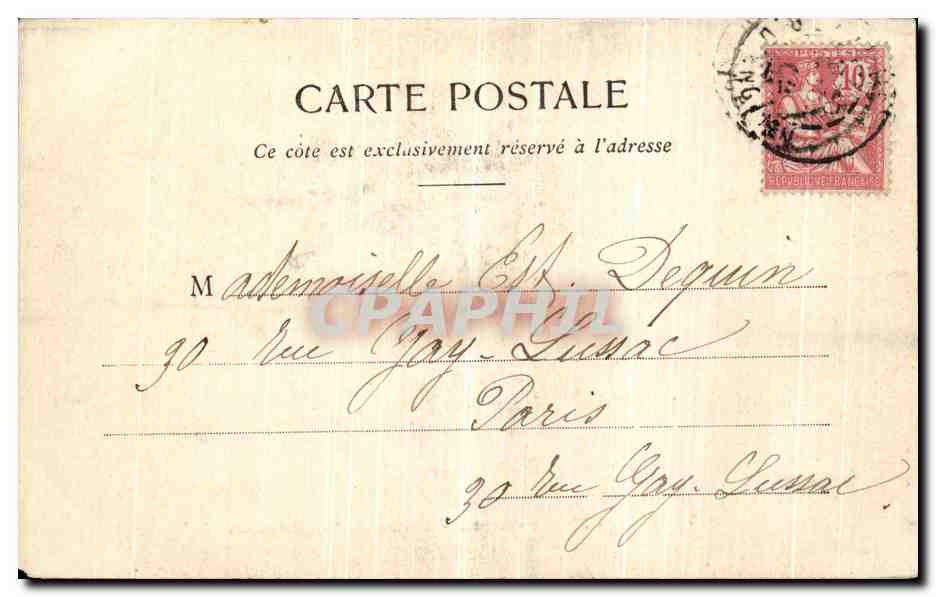 CARTE POSTALE
Ce côte est exclusivement réservé à l'adresse
POSTES
10
REPVBLIQVE FRANÇAISE
Mademoiselle Est. Dequin
CPAPHIL
30 rue Gay-Lussac
Paris
30 rue Gay-Lussac.